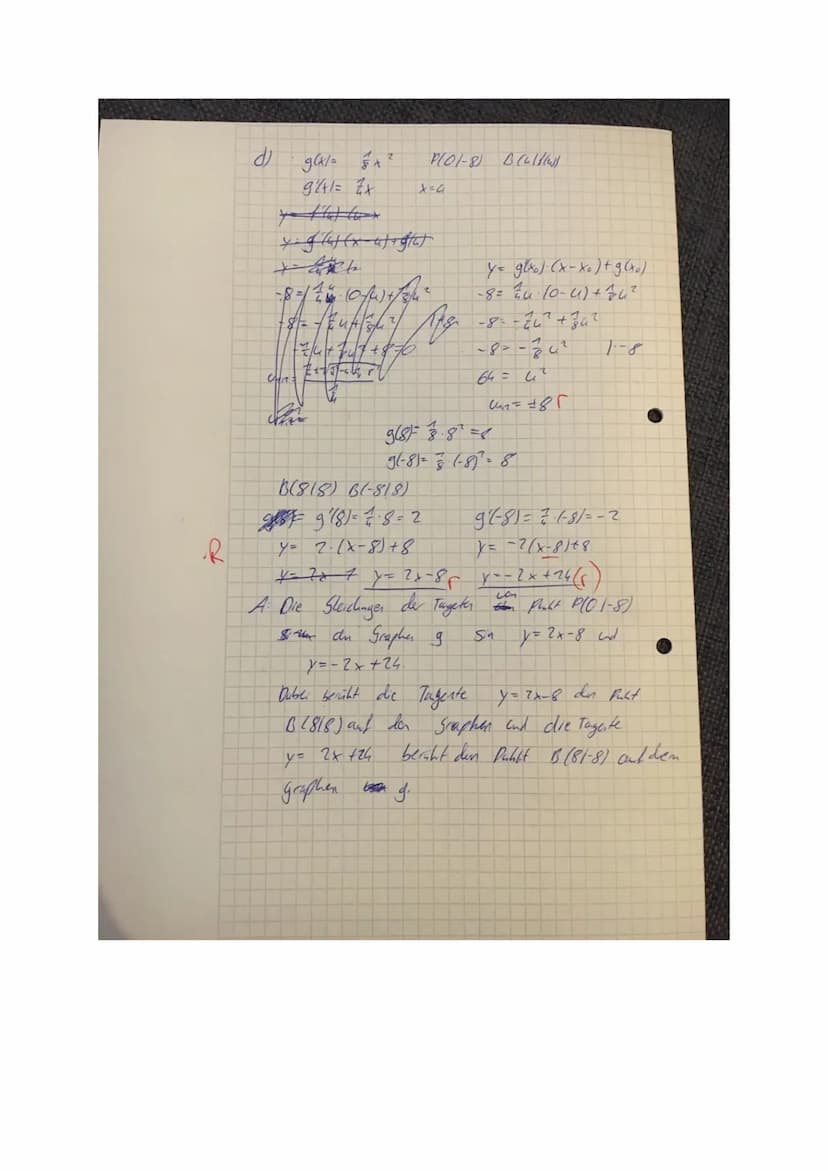 d) g(x)= 1/8 x² P(0|-8) B(u|f(u))
g'(x)= 1/4 x x=u
y = f'(u) (u-x
y = g'(u) (x-u)+g(u)
y = g(x₀)·(x-x₀)+g(x₀)
-8= 1/4 u ·(0-u)+1/8 u²
-8= 1/4 u·(0-u)+1/8 u²
-8= -1/4 u+1/8 u² |+8
-8= -1/4 u²+1/8 u²
-1/4 u+1/8 u²+8=0
-8= -1/8 u² |·-8
64= u²
u₁,₂= ±8 r
g(8)= 1/8·8²=8
g(-8)= 1/8·(-8)²= 8
B(8|8) B(-8|8)
g'(8)= 1/4·8=2 g'(-8)= 1/4·(-8)=-2
R y= 2·(x-8)+8 y= -2(x-8)+8
y= 2x-7 y= 2x-8 r y=-2x+24 (r)
A: Die Gleichungen der Tangeten von Punkt P(0|-8)
den Graphen g sin y=2x-8 und
y=-2x+24
Dabei berüht die Tangente y=2x-8 den Pukt
B(8|8) auf den Graphen und die Tagete
y= 2x+24 berüht den Puhkt B(8|-8) auf dem
graphen g.